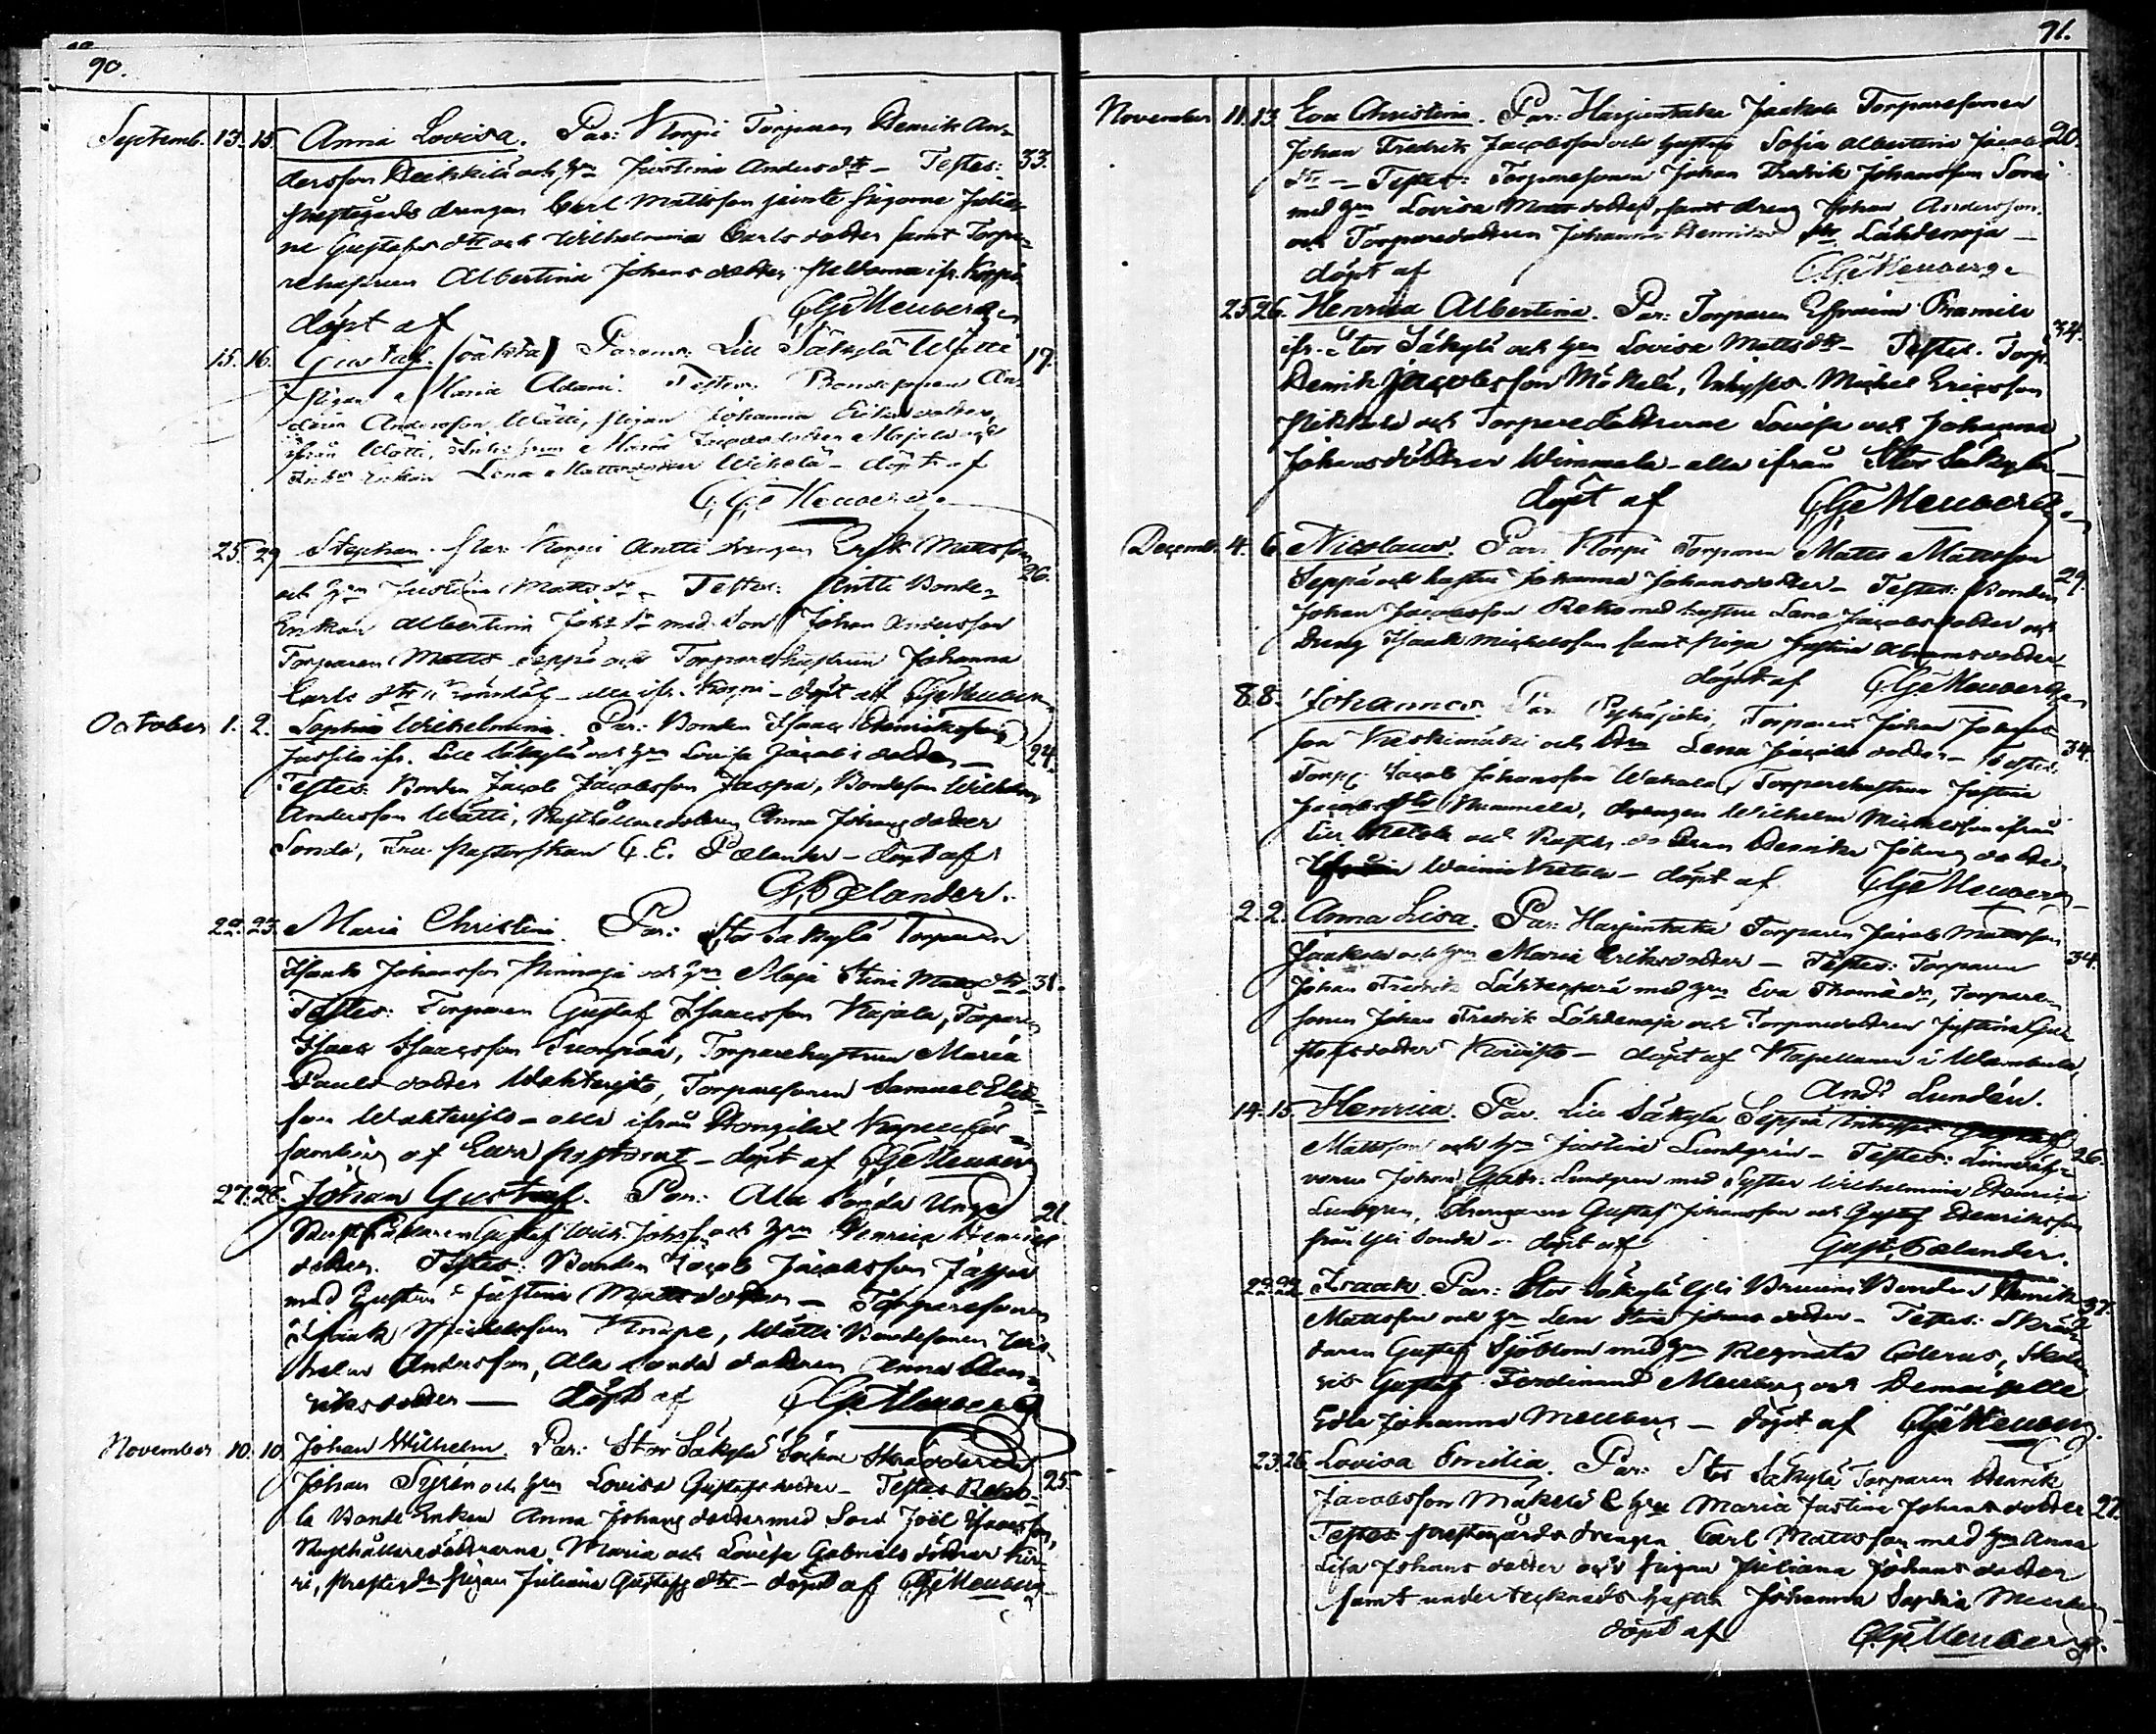 90.
Septemb. 13. 15. Anna Lovisa. Par: Korpi Torparen Henrik An-
dersson Heikkilä och hm Justina Andersdtr - Testes: 33.
prestegårds drengen Carl Mattsson jemte pigorna Julia-
na Gustafsdtr och Wilhelmina Carlsdotter samt Torpa-
rehustrun Albertina Johansdotter ifr. Korpi
döpt af G Ge Meuberg
15. 16. Gustaf (oäkta) Parens: Lill Säkylä Wätti 17.
pigan Maria Adami. Testes: Bondesonen An-
Andersson Wätti, pigan Johanna Eriksdotter
ifrån Wätti, Maria Jacobsdotter och
Enkan Lena Mattsdotter - döpt af
G Ge Meuberg
25. 29. Stephan. Par: Korpi Antti drengen Erik Mattsson 26.
och hm Justina Mattsdr - Testes: Antti Bonde-
Enkan Albertina Johsdr med son Johan Andersson
Torparen Matts Seppä och Torparehustrun Johanna
Carlsdtr - alla ifr. Korpi - döpt af G Ge Meuberg
October 1. 2. Sophia Wilhelmina. Par: Bonden Isaac Henriksson 24.
Jussila ifr. Lill Säkylä och hm Lovisa Jacobsdotter -
Testes: Bonden Jacob Jacobsson Jaspa, Bondeson Wilhelm
Andersson Wätti, Rusthållaredottren Anna Johansdotter
Sonda, Fru Pastorskan C. E. Pælander - döpt af
G. Pælander.
22. 23. Maria Christina. Par: Stor Säkylä Torparen
Isaak Johansson och hm Maja Stina Mattsdtr 31.
Testes: Torparen Gustaf Isaacsson Kajala, Torparen
Isaac Isaacsson Suonpää, Torparehustrun Maria
Paulsdotter Wahteristo, Torparesonen Samuel
son Wahteristo - alla ifrån Hongilax Kapellför-
samling af Eura Pastorat - döpt af G Ge Meuberg
27. 28. Johan Gustaf. Par: Ala Sonda Unga 21.
Rusthållaren Gustaf Wilh. Johsson och hm Henrica Henriks
dotter. Testes: Bonden Jacob Jacobsson Jaspa
med hustru Justina Mattsdotter - Torparesonen
Isaak Michelsson Knape, Wätti Bondesonen Wil-
helm Andersson, Ala Sonda dottren Anna Hen-
riksdotter - döpt af G Ge Meuberg
November 10. 10. Johan Wilhelm. Par: Stor Säkylä Sockne Skräddaren
Johan Syrén och hm Lovisa Gustafsdotter - Testes: 25.
Bonde Enkan Anna Johansdotter med Son Joël Isaacsson,
Rusthållaredöttrarna Maria och Lovisa Gabrielsdöttrar
pigan Juliana Gustafsdtr - döpt af G Ge Meuberg
91.
November 11. 13. Eva Christina. Par: Harjuntaka Jaakola Torparesonen
Johan Fredrik Jacobsson och hustru Sofia Albertina Jacobs 20.
dtr - Testes: Torparesonen Johan Fredrik Johansson
med hm Lovisa Mattsdotter, samt dreng Johan Andersson
och Torparedottren Johanna Henriksdtr Lähdenoja -
döpt af G Ge Meuberg
25. 26. Henrica Albertina. Par: Torparen Efraim
ifr. Stor Säkylä och hm Lovisa Mattsdtr - Testes: Torp. 34.
Henrik Jacobsson Mäkelä, Inhyses Michel Ericsson
och Torparedöttrarne Lovisa och Johanna
Johansdöttrar Wimmala - alla ifrån Stor Säkylä -
döpt af G Ge Meuberg
Decemb. 4. 6. Nicolaus. Par: Korpi Torparen Matts Mattsson
Seppä och hustru Johanna Johansdotter - Testes: Bonden 29.
Johan Jacobsson med hustru Lena Jacobsdotter och
dreng Isaak Michelsson samt piga Justina Abramsdotter
döpt af G Ge Meuberg
8. 8. Johannes. Par: Pyhäjoki, Torparen Johan Johans-
son Keskimäki och hm Lena Jacobsdotter - Testes: 34.
Torp. Jacob Johansson, Torparehustrun Justina
Jacobsdtr, drengen Wilhelm Michelsson ifrån
och dottren Henrika Johansdotter
- döpt af G Ge Meuberg
2. 2. Anna Lisa. Par: Harjuntaka Torparen Jacob Mattsson
Jaakola och hm Maria Eriksdotter - Testes: Torparen 34.
Johan Fredrik med hm Eva Thomædr, Torpare-
sonen Johan Fredrik Lähdenoja och Torparedottren Justina Gu-
stafsdotter Koivisto - döpt af Kapellanen i Wambula
Andr Lundén.
14. 15. Henrica. Par. Lill Säkylä Seppä
Mattsson och hm Justina Lundgrén - Testes: 26.
Johan Gabr. Lundgren med Syster Wilhelmina Henrica
Lundgren, drengarne Gustaf Johansson och Gustaf Henriksson
från Yli Sonda - döpt af Gust. Pælander.
22. 22. Isaak. Par: Stor Säkylä Yli Bonden Henrik 37.
Mattsson och hm Lena Stina Johansdotter - Testes: Skräd-
daren Gustaf Sjöblom med hm Regnata, Skola-
ris Gustaf Ferdinand Meuberg och Demoiselle
Edla Johanna Meuberg - döpt af G Ge Meuberg.
23. 26. Lovisa Emilia. Par: Stor Säkylä Torparen Henrik
Jacobsson Mäkelä & hm Maria Justina Johansdotter 27.
Testes: prestegårds drengen Carl Mattsson med hm Anna
Lisa Johansdotter och pigan Juliana Johansdotter
samt undertecknads hustru Johanna Sophia Meuberg -
döpt af G Ge Meuberg.